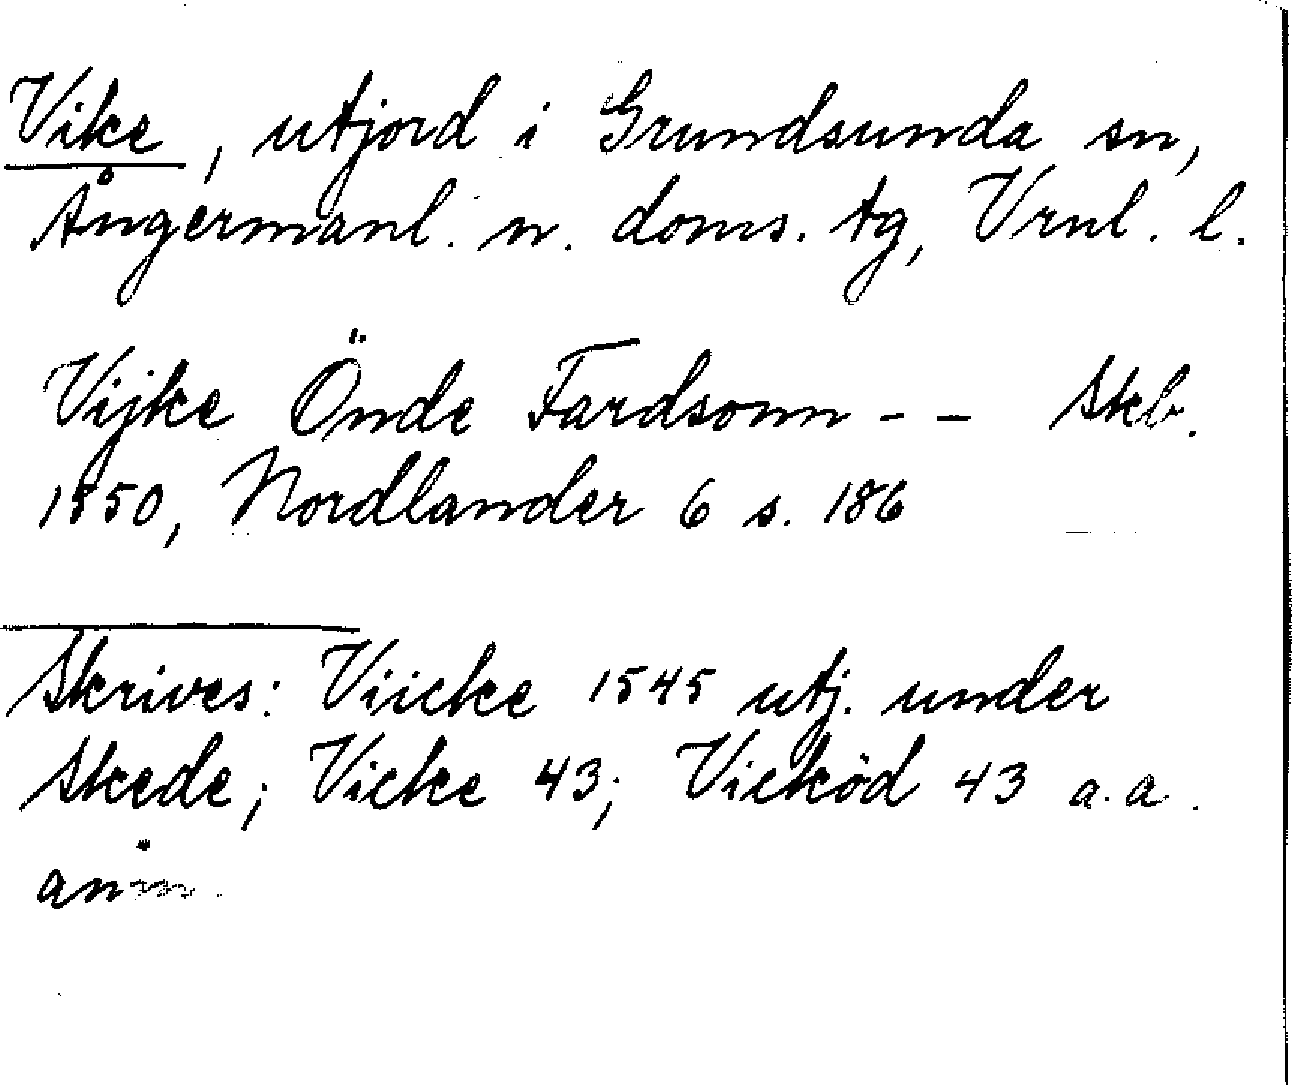 Vike, utjord i Grundsunda sn,
Ångermanl. n. doms. tg, Vrnl. l.
Vijke Önde Fardsonn - - Skb.
1550, Nordlander 6 s. 186
Skrives: Viicke 1545 utj. under
Skede; Vicke 43; Vicköd 43 a.a.
anm.